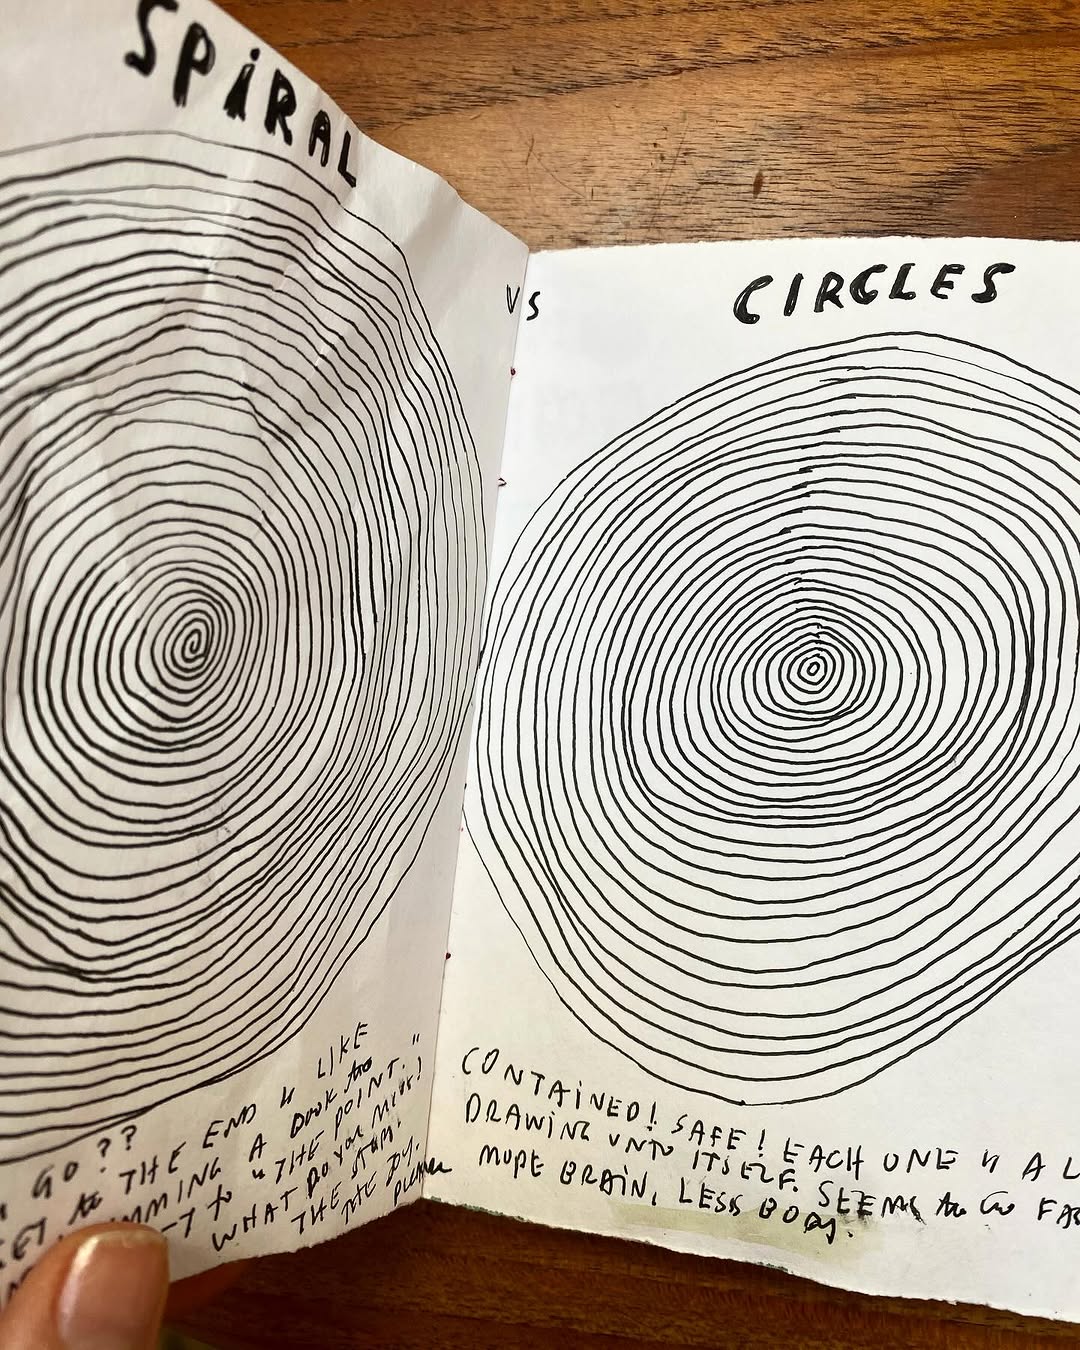 SPiRAL
VS
CIRCLES
GO??
to THE END is LIKE
A BOOK to
to "THE POINT."
WHAT DO YOU MISS!
THE STORY.
THE JOY.
CONTAiNED! SAFE! EACH ONE is A
DRAWiNG UNTO ITSELF. SEEMS to Go
MORE BRAiN, LESS BODY.